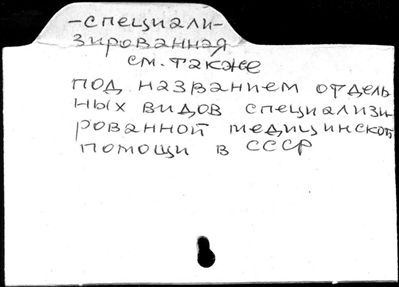 -специали-
зированная
см. также
под названием отдель
ных видов специализи
рованной медицинской
помощи в СССР